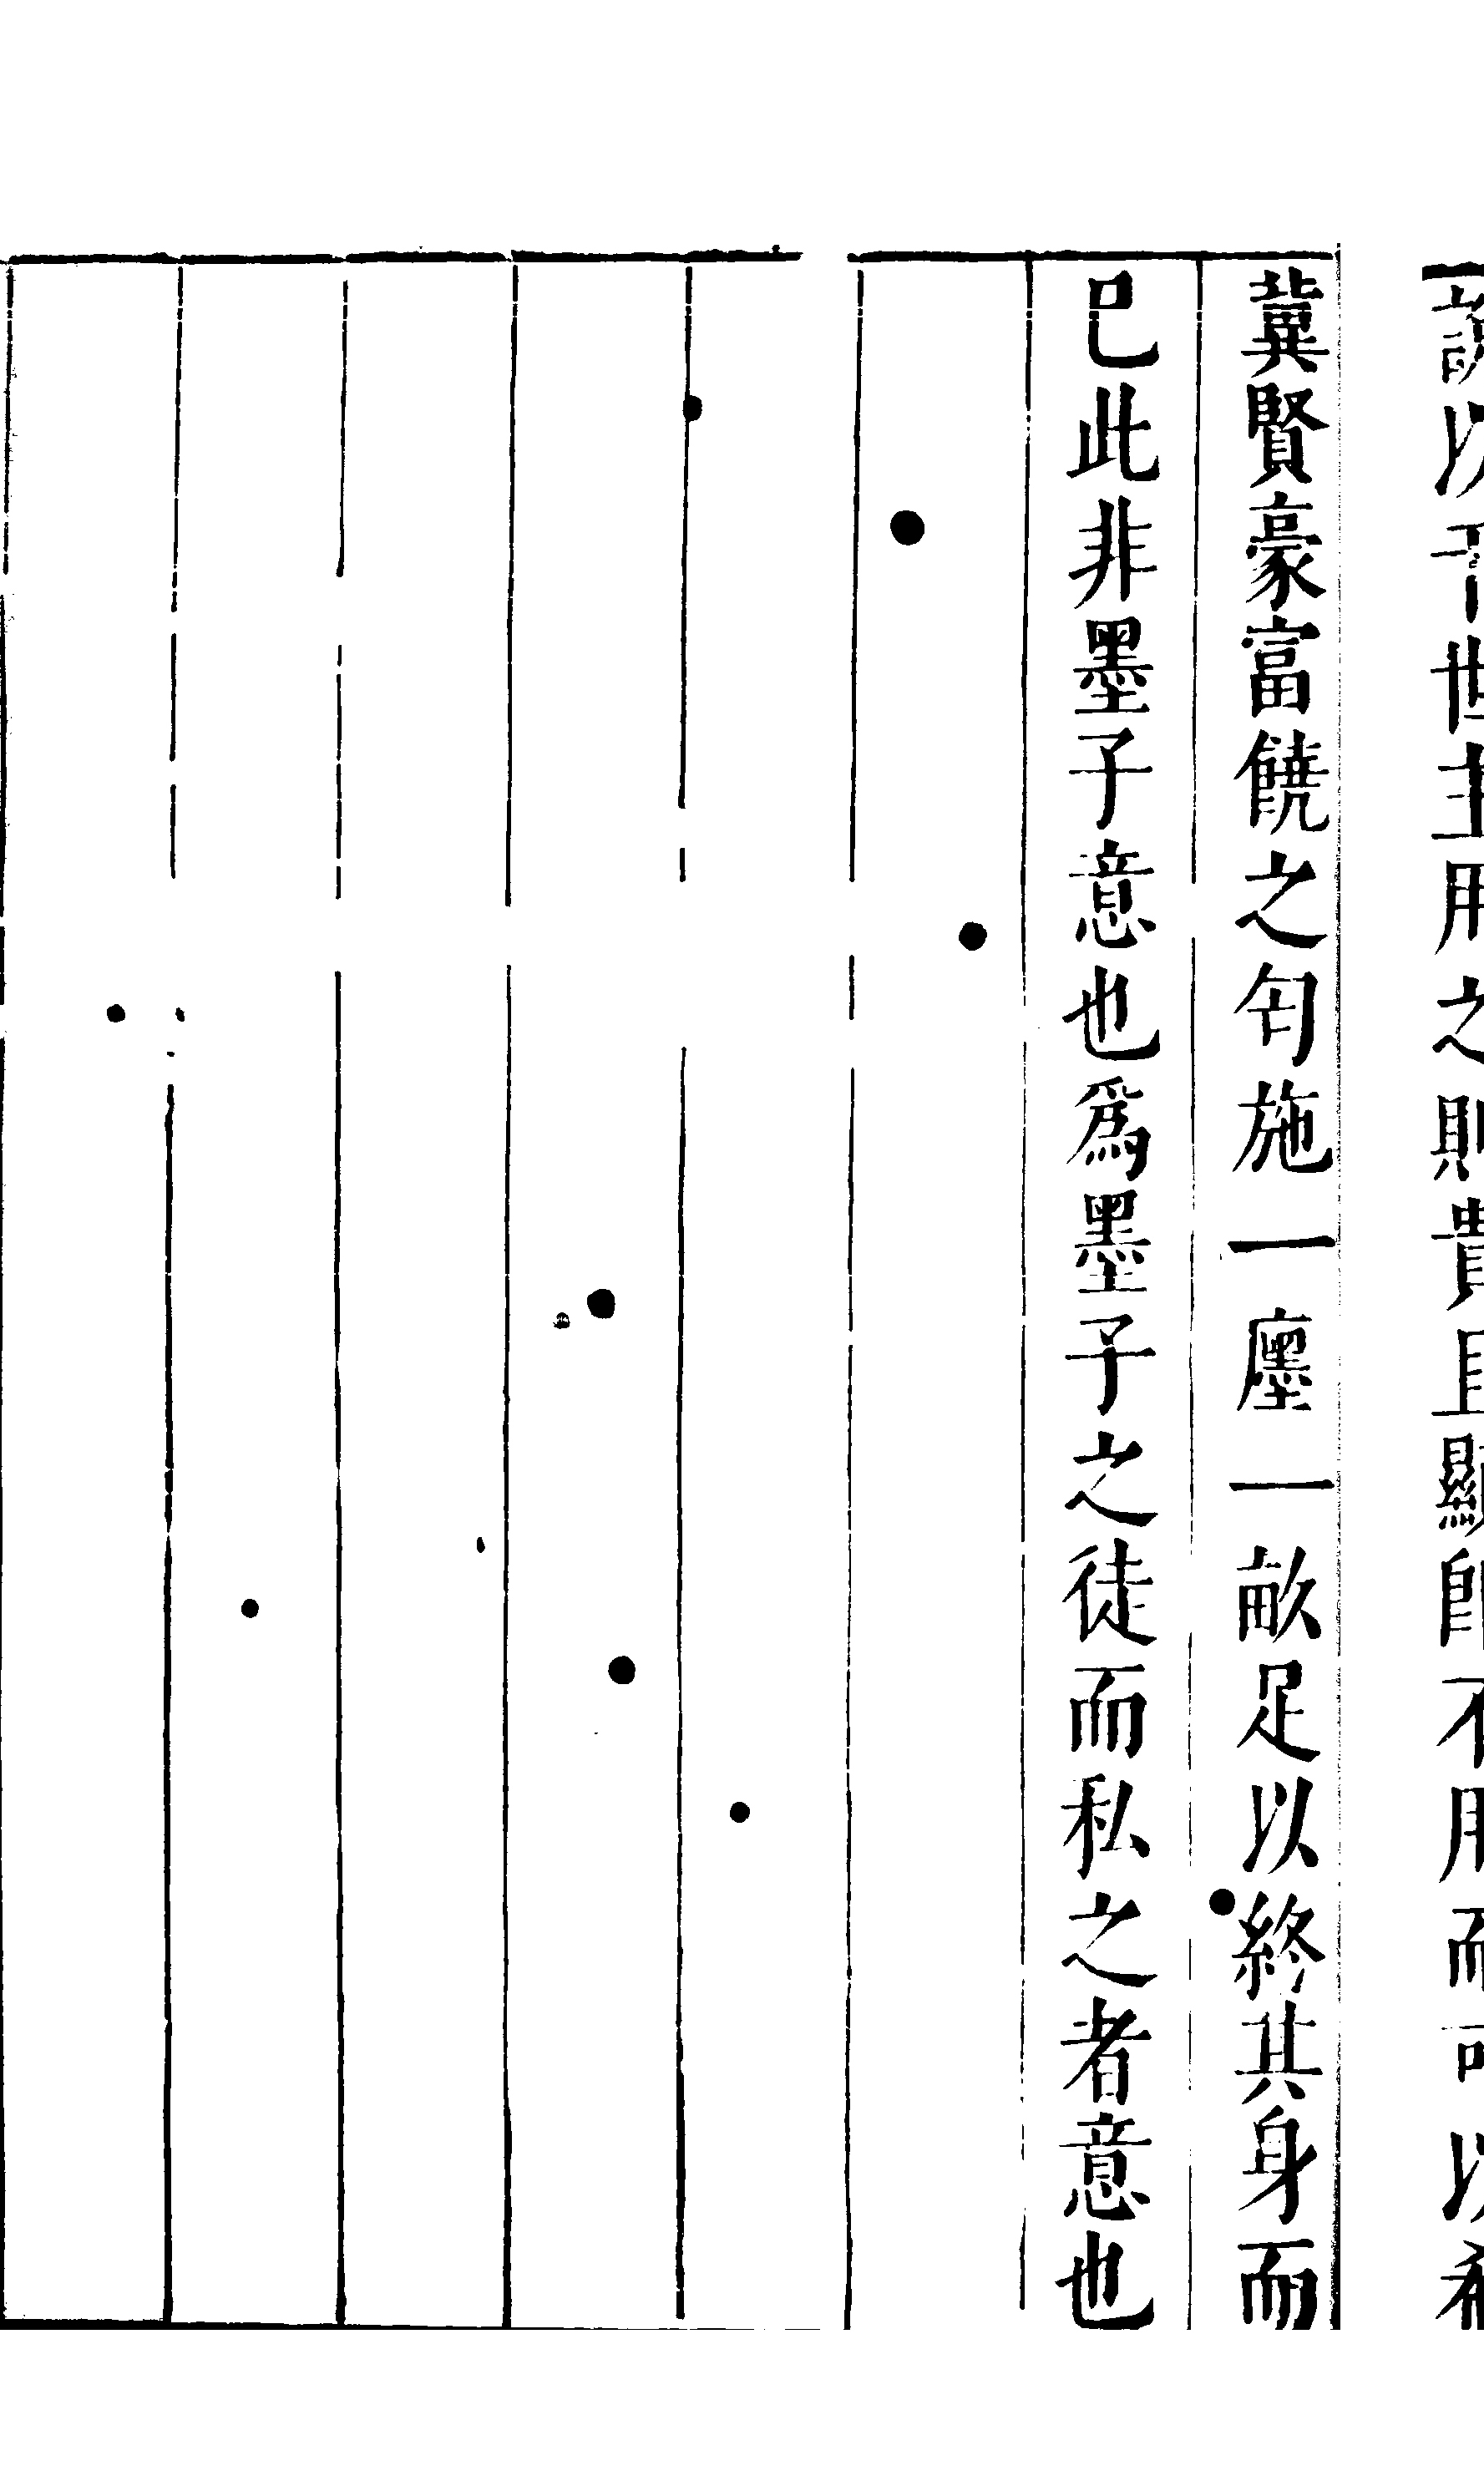 說以干世主用之則貴且顯卽不用而可以希
冀賢豪富饒之匄施一廛一畝足以終其身而
已此非墨子意也爲墨子之徒而私之者意也